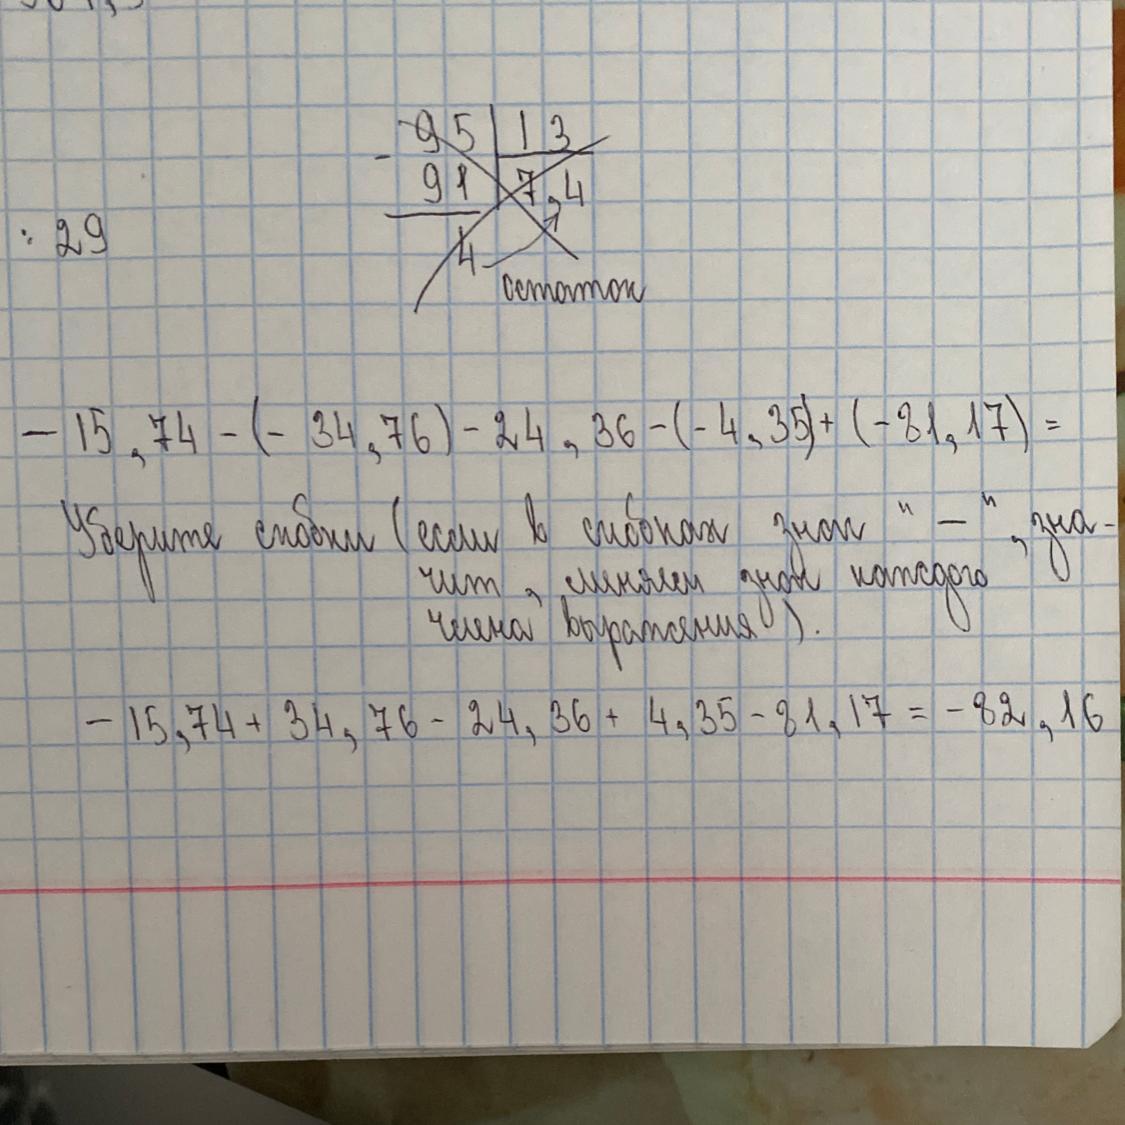 95 | 13
- 91 | 7,4
4
остаток
: 29
- 15,74 - (- 34,76) - 24,36 - (- 4,35) + (- 81,17) =
Уберите скобки (если в скобках знак "—", зна-
чит, меняем знак каждого
члена выражения).
- 15,74 + 34,76 - 24,36 + 4,35 - 81,17 = - 82,16